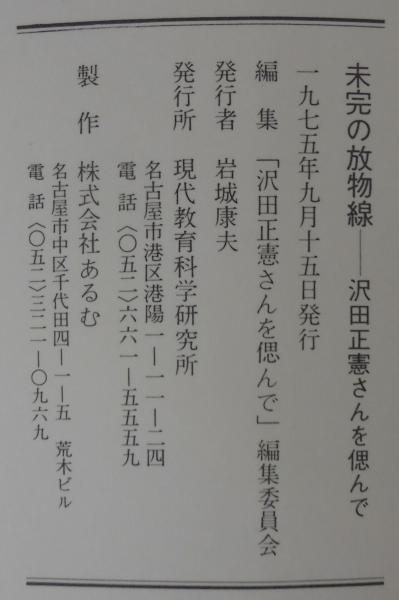 未完の放物線──沢田正憲さんを偲んで
一九七五年九月十五日発行
編集 「沢田正憲さんを偲んで」編集委員会
発行者 岩城康夫
発行所 現代教育科学研究所
名古屋市港区港陽一―一一―二四
電話〈〇五二〉六六一―五五五九
製作 株式会社あるむ
名古屋市中区千代田四―一―五 荒木ビル
電話〈〇五二〉三二一―〇九六九